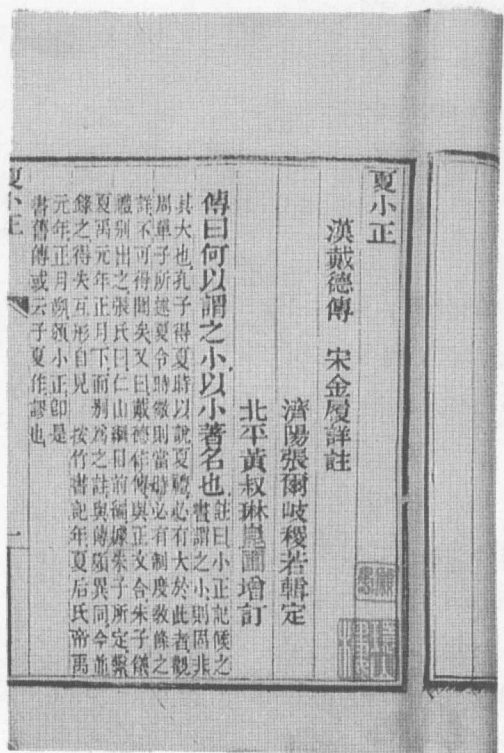 夏小正
漢戴德傳　宋金履詳註
濟陽張爾岐稷若輯定
北平黃叔琳崑圃增訂
傳曰何以謂之小以小著名也註曰小正記候之
書謂之小則固非
其大也孔子得夏時以說夏禮必有大於此者觀
周單子所述夏令時儆則當時必有制度敎條之
詳不可得聞矣又曰戴德作傳與正文合朱子儀
禮別出之張氏曰仁山綱目前編據朱子所定繫
夏禹元年正月下而别爲之註與傳頗異同今並
錄之得失互形自見　按竹書記年夏后氏帝禹
元年正月頒小正卽是
書舊傳或云子夏作謬也
夏小正
一